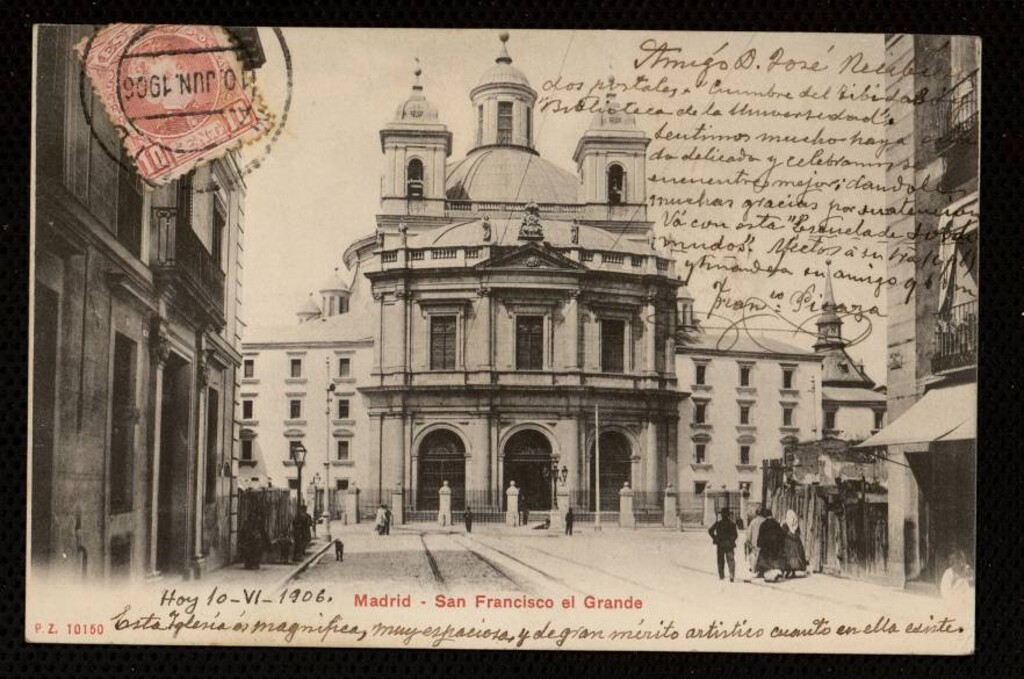 10 JUN. 1906
10
Amigó D. José Recibi
dos postales "Cumbre del Tibidabo
Biblioteca de la Universidad".
Sentimos mucho haya
do delicada y celebramos se
encuentre mejor; dandole
muchas gracias por su atencion
Vá con esta "Escuela de Sordo
mudos". Afectos á su
y mande a su amigo q
Fran.co Picaza
Hoy 10-VI-1906.
Madrid - San Francisco el Grande
P. Z. 10150
Esta Iglesia és magnifica, muy espaciosa, y de gran mérito artistico cuanto en ella existe.